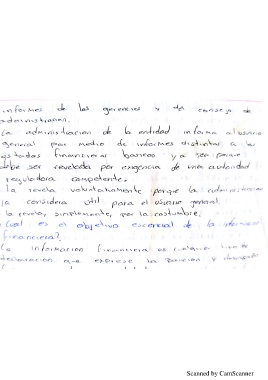 informes de las gerencias y del consejo de
administracion.
La administracion de la entidad informa al usuario
general por medio de informes distintos a los
estados financieros basicos ya sea porque
debe ser revelada por exigencia de una autoridad
reguladora competente.
la revela voluntariamente porque la administracion
la considera util para el usuario general
la revela, simplemente, por la costumbre.
Cual es el objetivo esencial de la informacion
financiera?
La informacion financiera es cualquier tipo de
declaracion que exprese la posicion y desempeño
Scanned by CamScanner